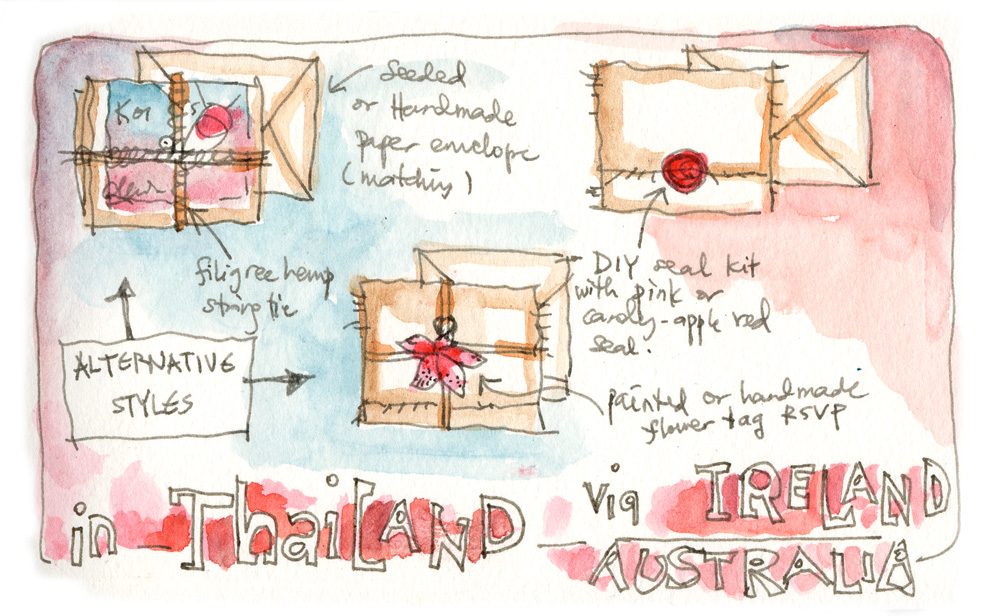 Seeded
or Handmade
paper envelope
(matching)
filigree hemp
string tie
DIY seal kit
with pink or
candy-apple red
seal.
ALTERNATIVE
STYLES
painted or handmade
flower tag RSVP
in THAILAND
Via IRELAND
AUSTRALIA